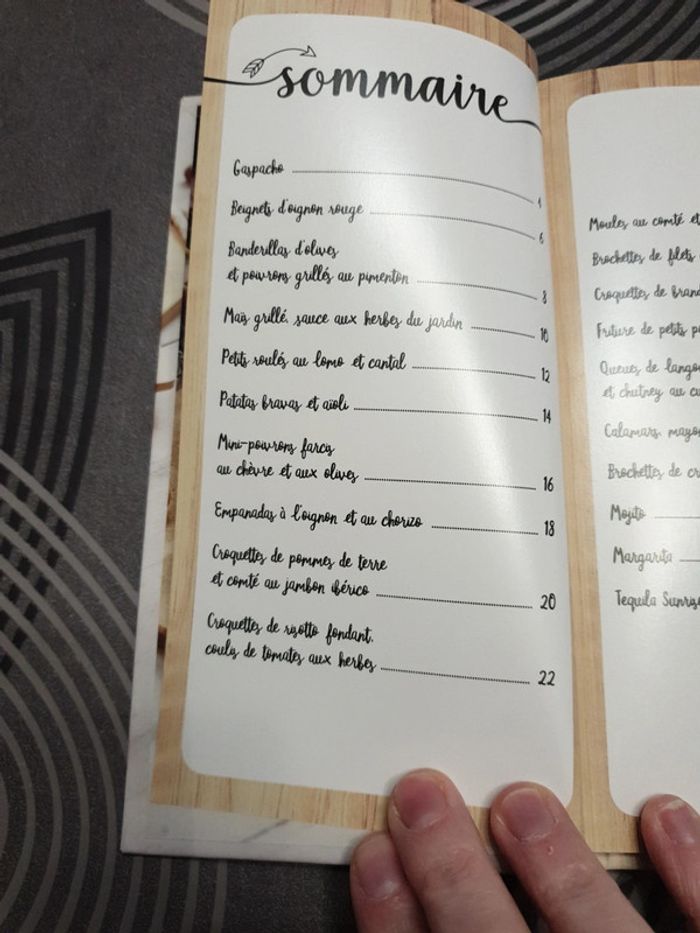 sommaire
Gaspacho 4
Beignets d'oignon rouge 6
Banderillas d'olives
et poivrons grillés au pimentón 8
Maïs grillé, sauce aux herbes du jardin 10
Petits roulés au lomo et cantal 12
Patatas bravas et aïoli 14
Mini-poivrons farcis
au chèvre et aux olives 16
Empanadas à l'oignon et au chorizo 18
Croquettes de pommes de terre
et comté au jambon ibérico 20
Croquettes de risotto fondant,
coulis de tomates aux herbes 22
Moules au comté et
Brochettes de filets
Croquettes de
Friture de petits
Queues de
et chutney au
Calamars,
Brochettes de
Mojito
Margarita
Tequila Sunrise